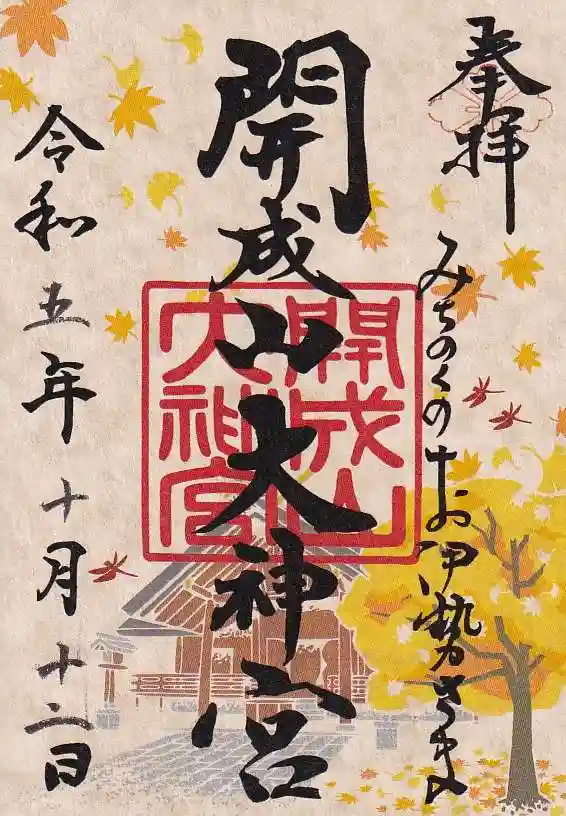 奉拝
みちのくのおお伊勢さま
開成山大神宮
開成山大神宮
令和五年十月十二日